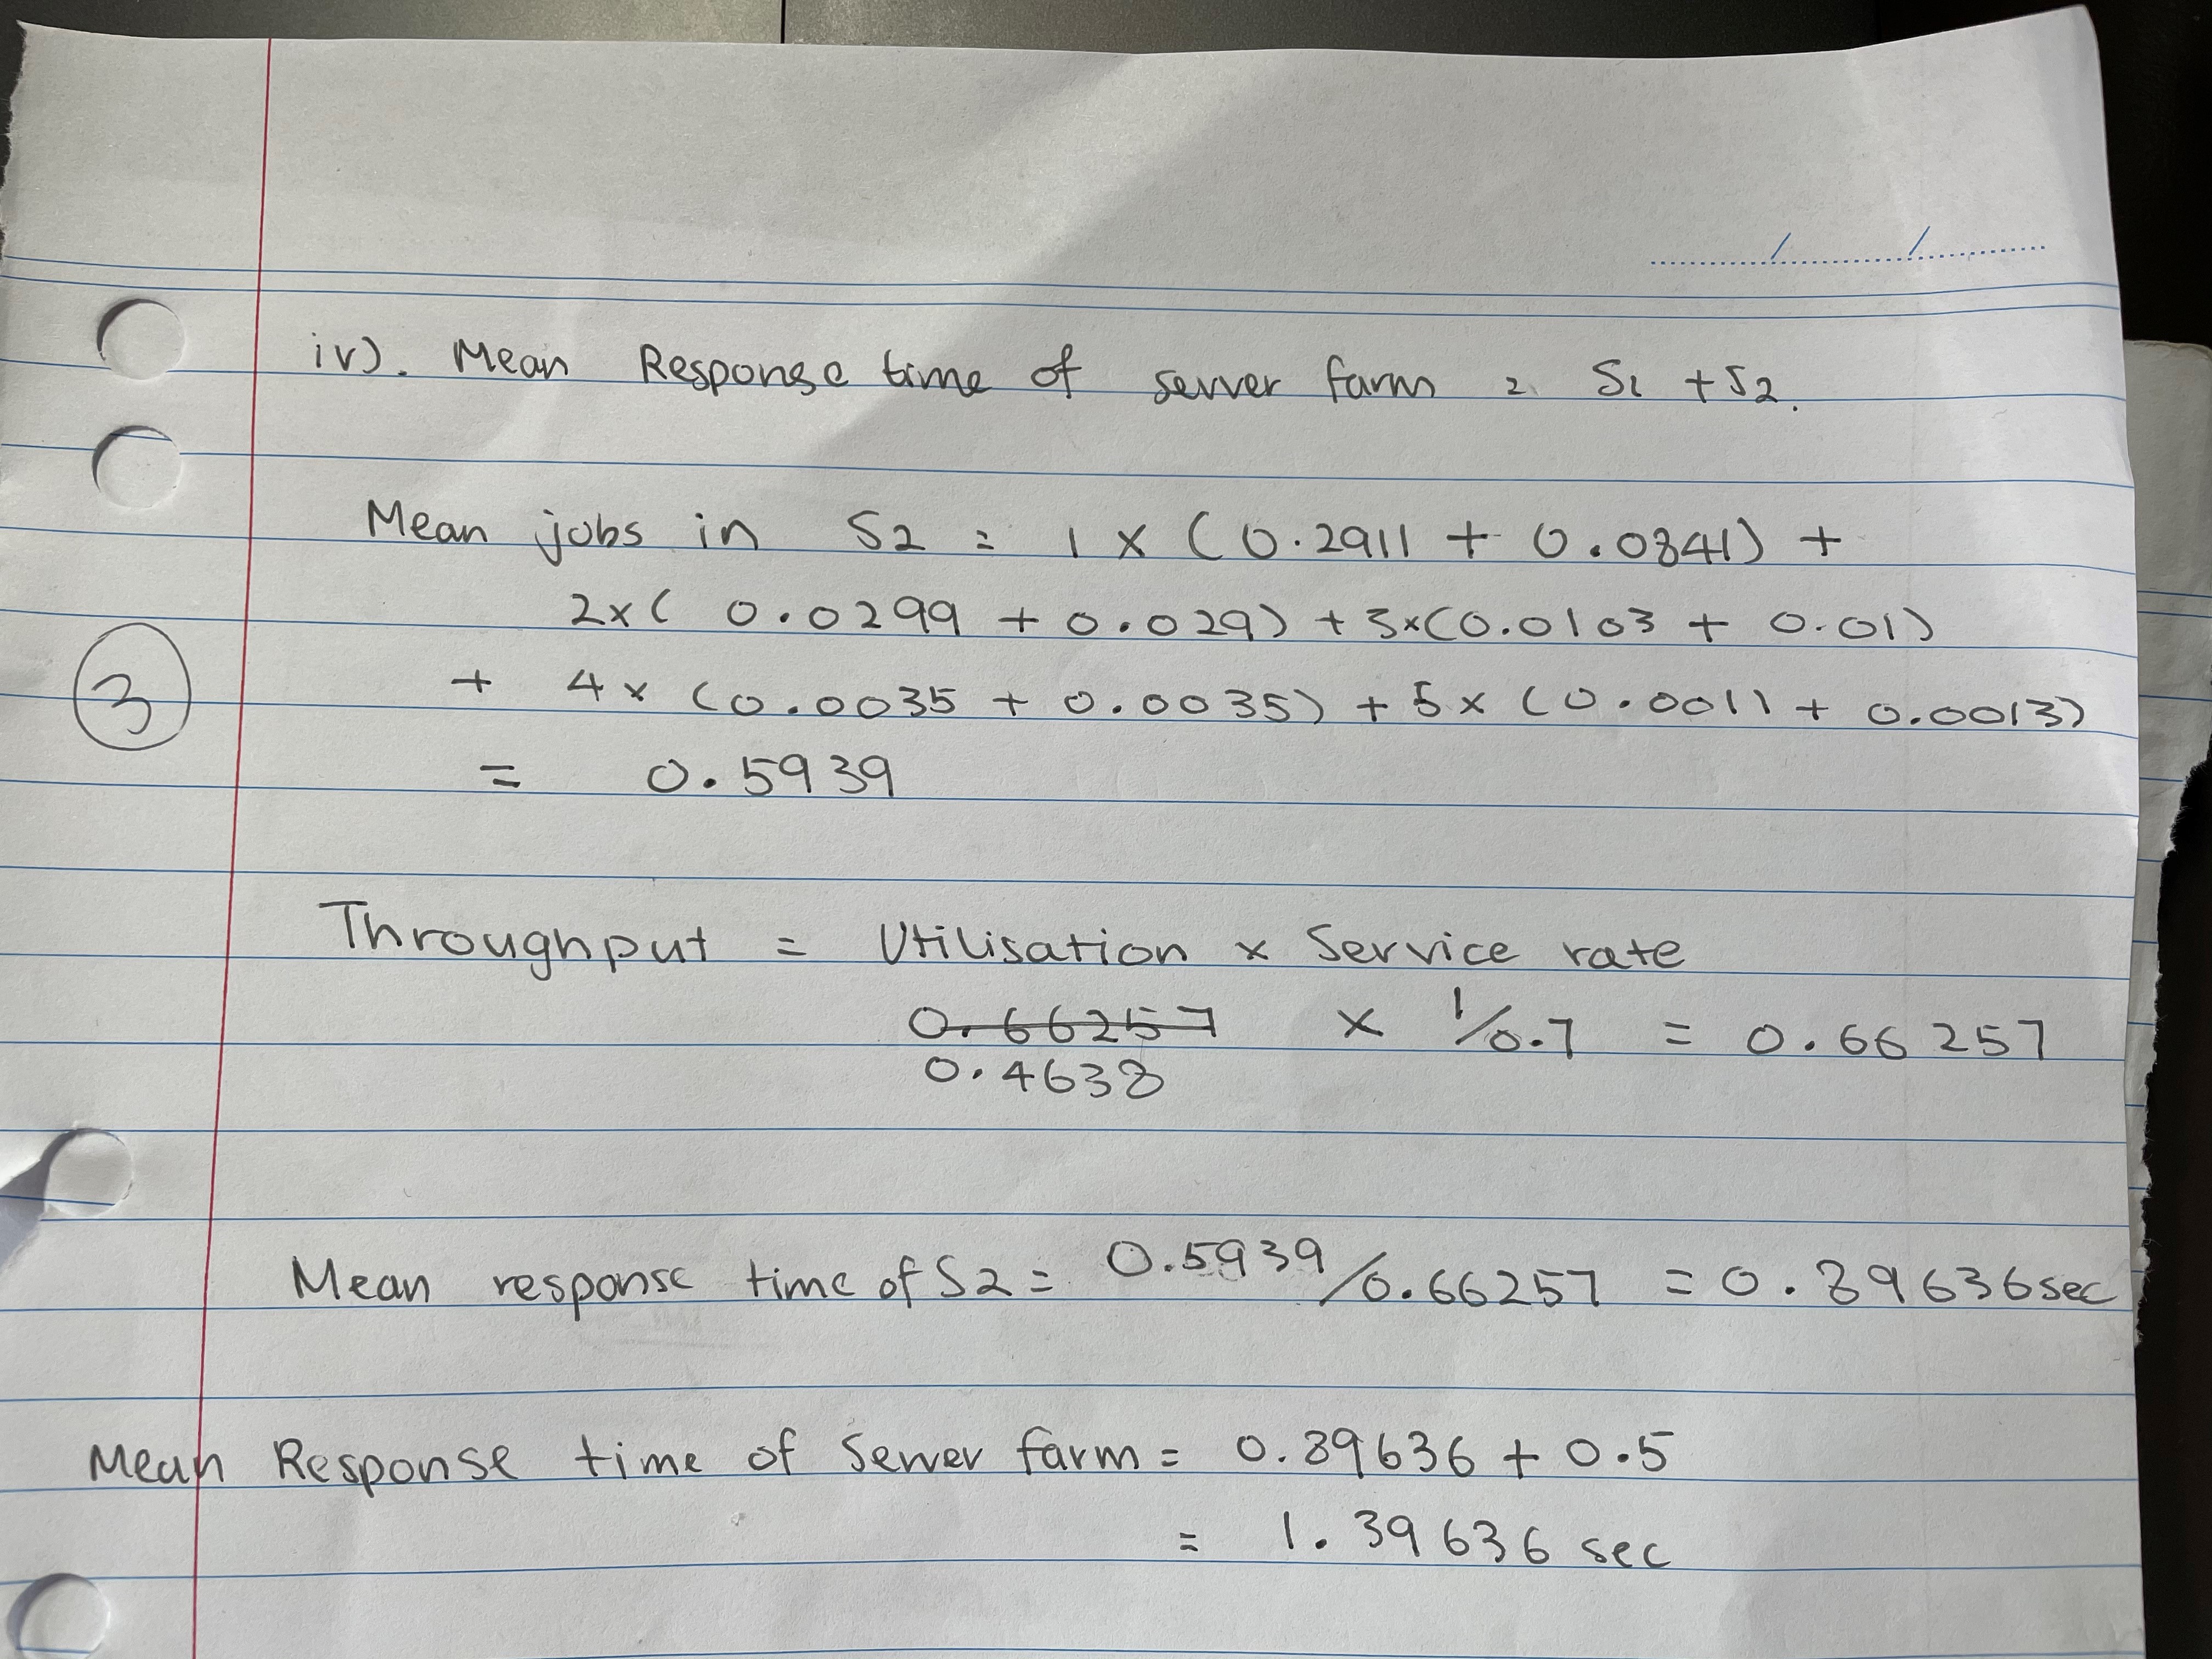 iv). Mean Response time of server farm = S1 + S2.
Mean jobs in S2 = 1 x (0.2911 + 0.0841) +
2x( 0.0299 + 0.029) + 3x(0.0103 + 0.01)
+ 4 x (0.0035 + 0.0035) + 5 x (0.0011 + 0.0013)
3
= 0.5939
Throughput = Utilisation x Service rate
0.66257 x 1/0.7 = 0.66257
0.4638
Mean response time of S2 = 0.5939/0.66257 = 0.89636sec
Mean Response time of Server farm = 0.89636 + 0.5
= 1.39636 sec